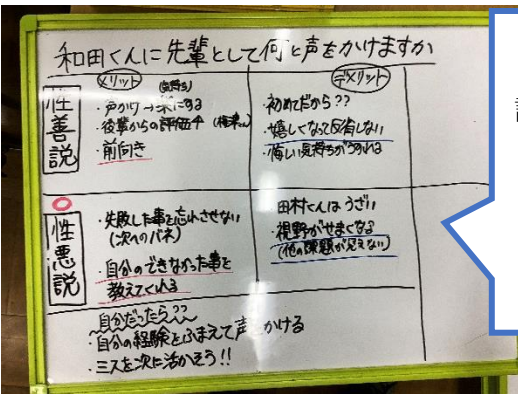 和田くんに先輩として何と声をかけますか
メリット
デメリット
性善説
(気持ち)
・声かけ→楽にする
・後輩からの評価
・前向き
・初めてだから??
・嬉しくなって反省しない
・悔しい気持ちがうすれる
性悪説
・失敗した事を忘れさせない
(次へのバネ)
・自分のできなかった事を
教えてくれる
田村くんはうざい
・視野がせまくなる
(他の課題が見えない)
自分だったら??
・自分の経験をふまえて声をかける
・ミスを次に活かそう!!